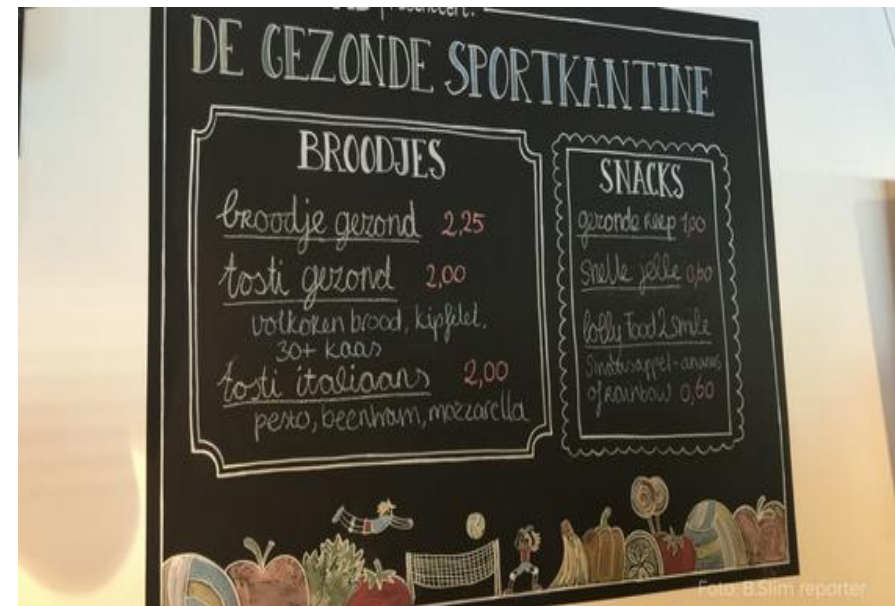 presenteert:
DE GEZONDE SPORTKANTINE
BROODJES
broodje gezond 2,25
tosti gezond 2,00
volkoren brood, kipfilet,
30+ kaas
tosti italiaans 2,00
pesto, beenham, mozzarella
SNACKS
gezonde reep 1,00
Snelle jelle 0,60
lolly Food2Smile
Sinaasappel-ananas
of rainbow 0,60
Foto: B.Slim reporter